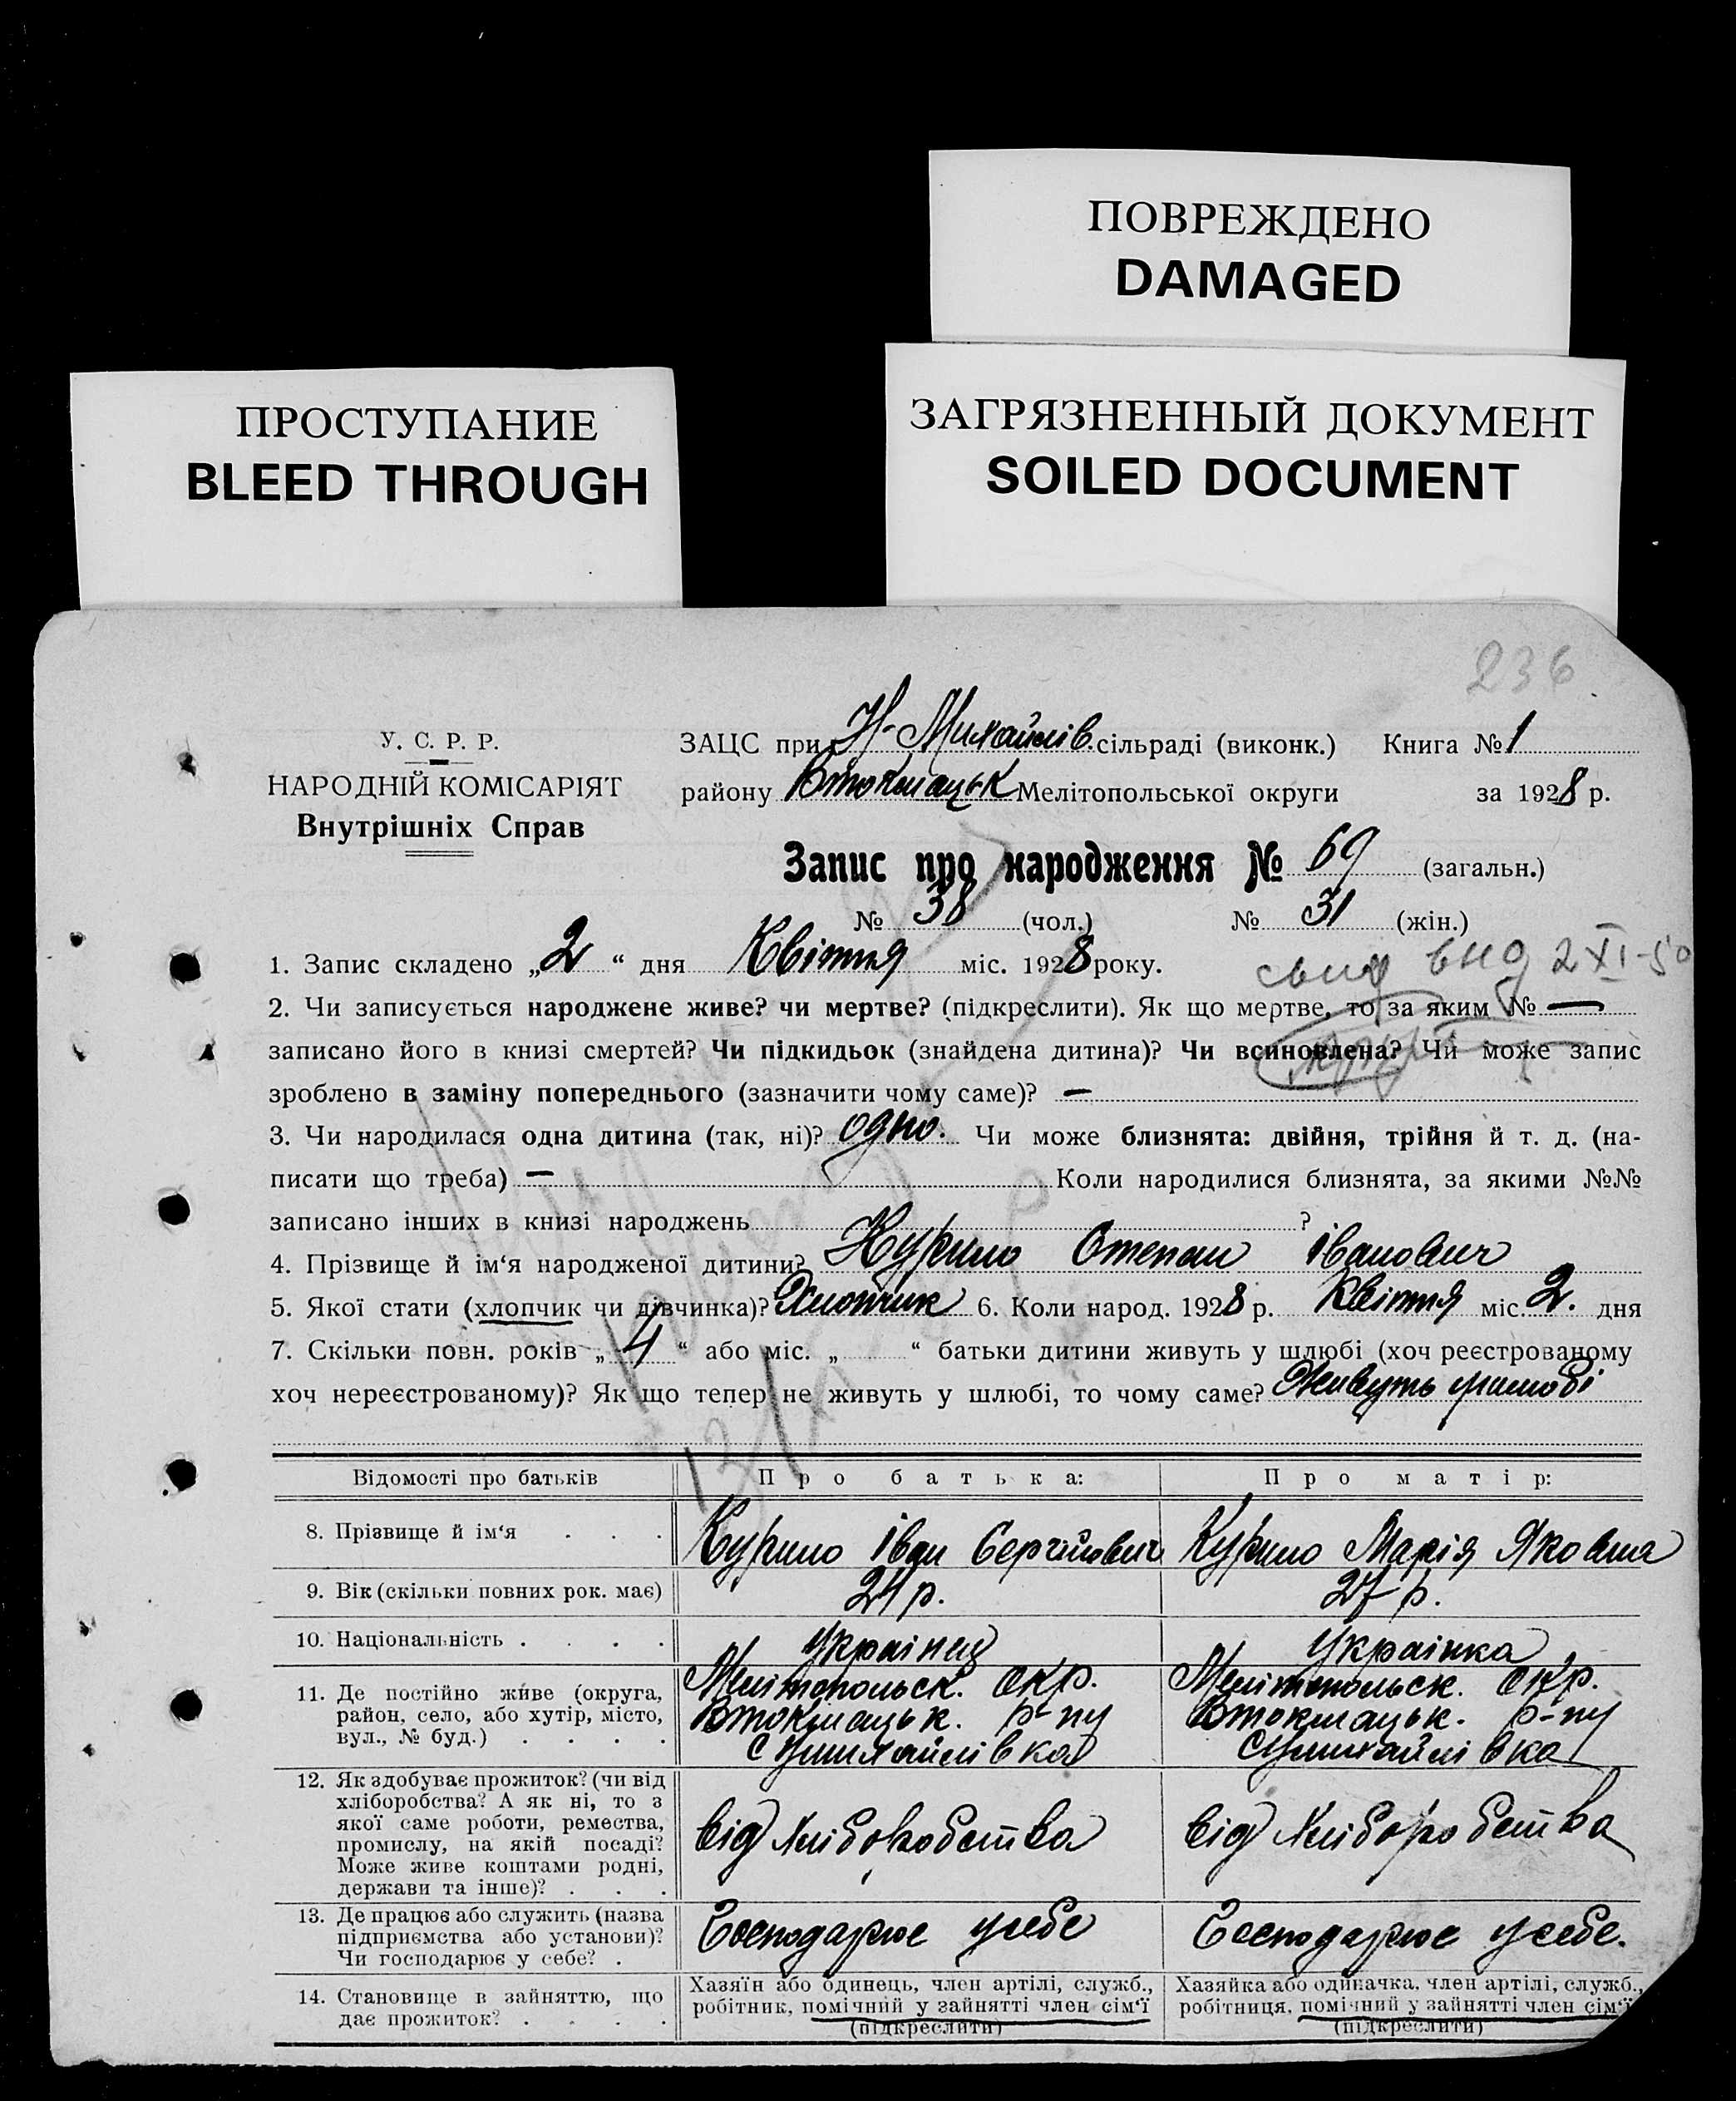 ПОВРЕЖДЕНО
DAMAGED
ПРОСТУПАНИЕ
BLEED THROUGH
ЗАГРЯЗНЕННЫЙ ДОКУМЕНТ
SOILED DOCUMENT
236
У. С. Р. Р.
НАРОДНІЙ КОМІСАРІЯТ
Внутрішніх Справ
ЗАЦС при Н-Михайлів. сільраді (виконк.) Книга № 1
району Втокмацьк Мелітопольської округи за 1928 р.
Запис про народження № 69 (загальн.)
№ 38 (чол.) № 31 (жін.)
1. Запис складено „2“ дня Квітня міс. 1928 року.
2 XI-50
2. Чи записується народжене живе? чи мертве? (підкреслити). Як що мертве, то за яким № —
записано його в книзі смертей? Чи підкидьок (знайдена дитина)? Чи всиновлена? Чи може запис
зроблено в заміну попереднього (зазначити чому саме)? —
3. Чи народилася одна дитина (так, ні)? одно. Чи може близнята: двійня, трійня й т. д. (на-
писати що треба) — Коли народилися близнята, за якими №№
записано інших в книзі народжень ?
4. Прізвище й ім‘я народженої дитини? Курило Степан Іванович
5. Якої стати (хлопчик чи дівчинка)? Хлопчик 6. Коли народ. 1928 р. Квітня міс. 2. дня
7. Скільки повн. років „4“ або міс. „ “ батьки дитини живуть у шлюбі (хоч реєстрованому
хоч нереєстрованому)? Як що тепер не живуть у шлюбі, то чому саме? Живуть ушлюбі
Відомості про батьків Про батька: Про матір:
8. Прізвище й ім‘я . . . Курило Іван Сергійович Курило Марія Яковна
9. Вік (скільки повних рок. має) 24 р. 27 р.
10. Національність . . . . Українец Українка
11. Де постійно живе (округа,
район, село, або хутір, місто,
вул., № буд.) . . . .
Мелітопольск. Окр.
Втокмацьк. р-ну
Мелітопольск. Окр.
Втокмацьк. р-ну
12. Як здобуває прожиток? (чи від
хліборобства? А як ні, то з
якої саме роботи, ремества,
промислу, на якій посаді?
Може живе коштами родні,
держави та інше)? . . .
від хліборобства
від хліборобства
13. Де працює або служить (назва
підприємства або установи)?
Чи господарює у себе? .
Господарює усебе
Господарює усебе.
14. Становище в зайняттю, що
дає прожиток? . . . .
Хазяїн або одинець, член артілі, служб.,
робітник, помічний у зайнятті член сім‘ї
(підкреслити)
Хазяйка або одиначка, член артілі, служб.,
робітниця, помічний у зайнятті член сім‘ї
(підкреслити)